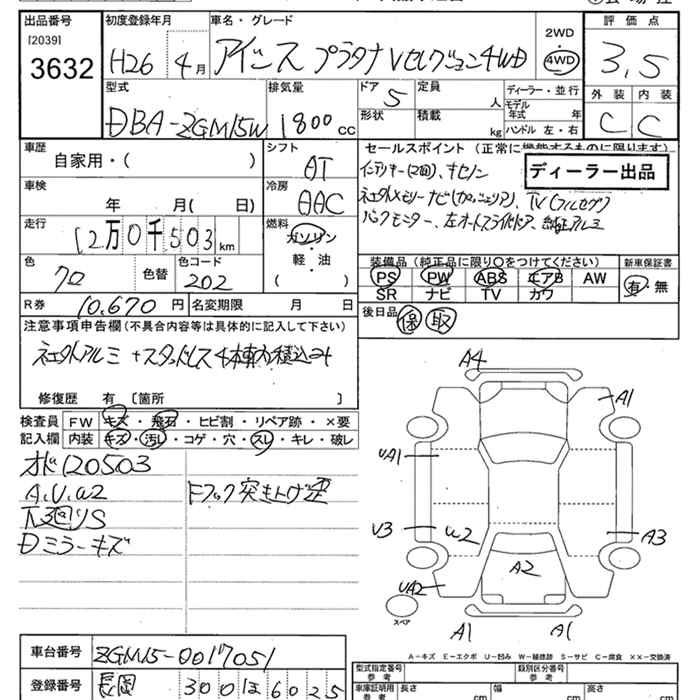 出品番号 初度登録年月 車名・グレード 2WD 評価点
[2039] 3632 H26 4月 アイシス プラタナ Vセレクション4WD 4WD 3.5
外装 内装
C C
型式 排気量 ドア 定員 ディーラー・並行
DBA-ZGM15W 1800cc 5 人 モデル年式 年
形状 積載 kg ハンドル 左・右
車歴 シフト セールスポイント(正常に機能するものに限ります)
自家用・( ) AT ディーラー出品
車検 冷房
年 月( 日) AAC
バックモニター、左オートスライドドア、純正アルミ
走行 燃料
12万0千503km ガソリン
軽・油
( )
色 色替 色コード
クロ 202
装備品(純正品に限り○をつけてください) 新車保証書
PS PW ABS エアB AW 有・無
SR ナビ TV カワ
R券 10,670円 名変期限 月 日
後日品 保 取
注意事項申告欄(不具合内容等は具体的に記入して下さい)
社外アルミ+スタッドレス4本車内積込み
修復歴 有 〔箇所 〕
検査員 FW キズ・飛石・ヒビ割・リペア跡・×要
記入欄 内装 キズ・汚レ・コゲ・穴・スレ・キレ・破レ
オド120503
A.U.W2 Fフック突き上げ歪
下廻りS
Dミラーキズ
A4
A1
UA1
U3 W2 A3
A2
UA2
スペア
A1 A1
A-キズ E-エクボ U-凹み W-補修跡 S-サビ C-腐食 ××-交換済
車台番号 ZGM15-0017051
型式指定番号 参考 類別区分番号 参考
登録番号 長岡 300 は 6025
車庫証明用 参考 長さ cm 幅 cm 高さ cm